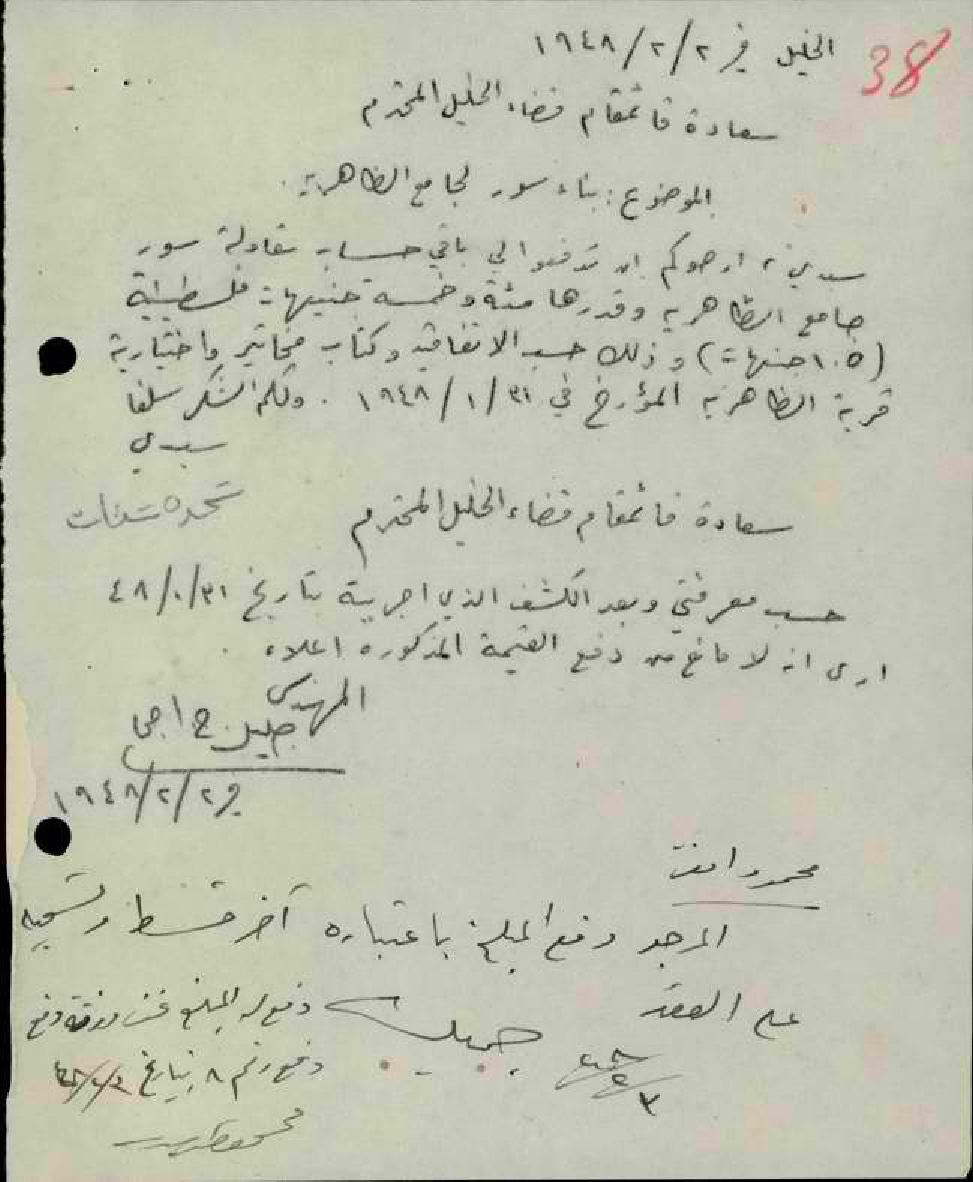 38
الخليل في ٢/٢/١٩٤٨
سعادة قائمقام قضاء الخليل المحترم
الموضوع: بناء سور لجامع الظاهرية.
سيدي، ارجوكم ان تدفعوا لي باقي حساب مقاولة سور
جامع الظاهرية وقدرها مئة وخمسة جنيهات فلسطينية
(١٠٥ جنيهات) وذلك حسب الاتفاقية وكتاب مخاتير واختيارية
قرية الظاهرية المؤرخ في ٣١/١/١٩٤٨. ولكم الشكر سلفا
سيدي
سعادة قائمقام قضاء الخليل المحترم
حسب معرفتي وبعد الكشف الذي اجريته بتاريخ ٣١/١/٤٨
ارى انه لا مانع من دفع القيمة المذكورة اعلاه.
المهندس
في ٢/٢/١٩٤٨
محمود افندي
ارجو دفع المبلغ باعتباره آخر قسط
على العقد
دفع له المبلغ
دفع رقم ٨ بتاريخ